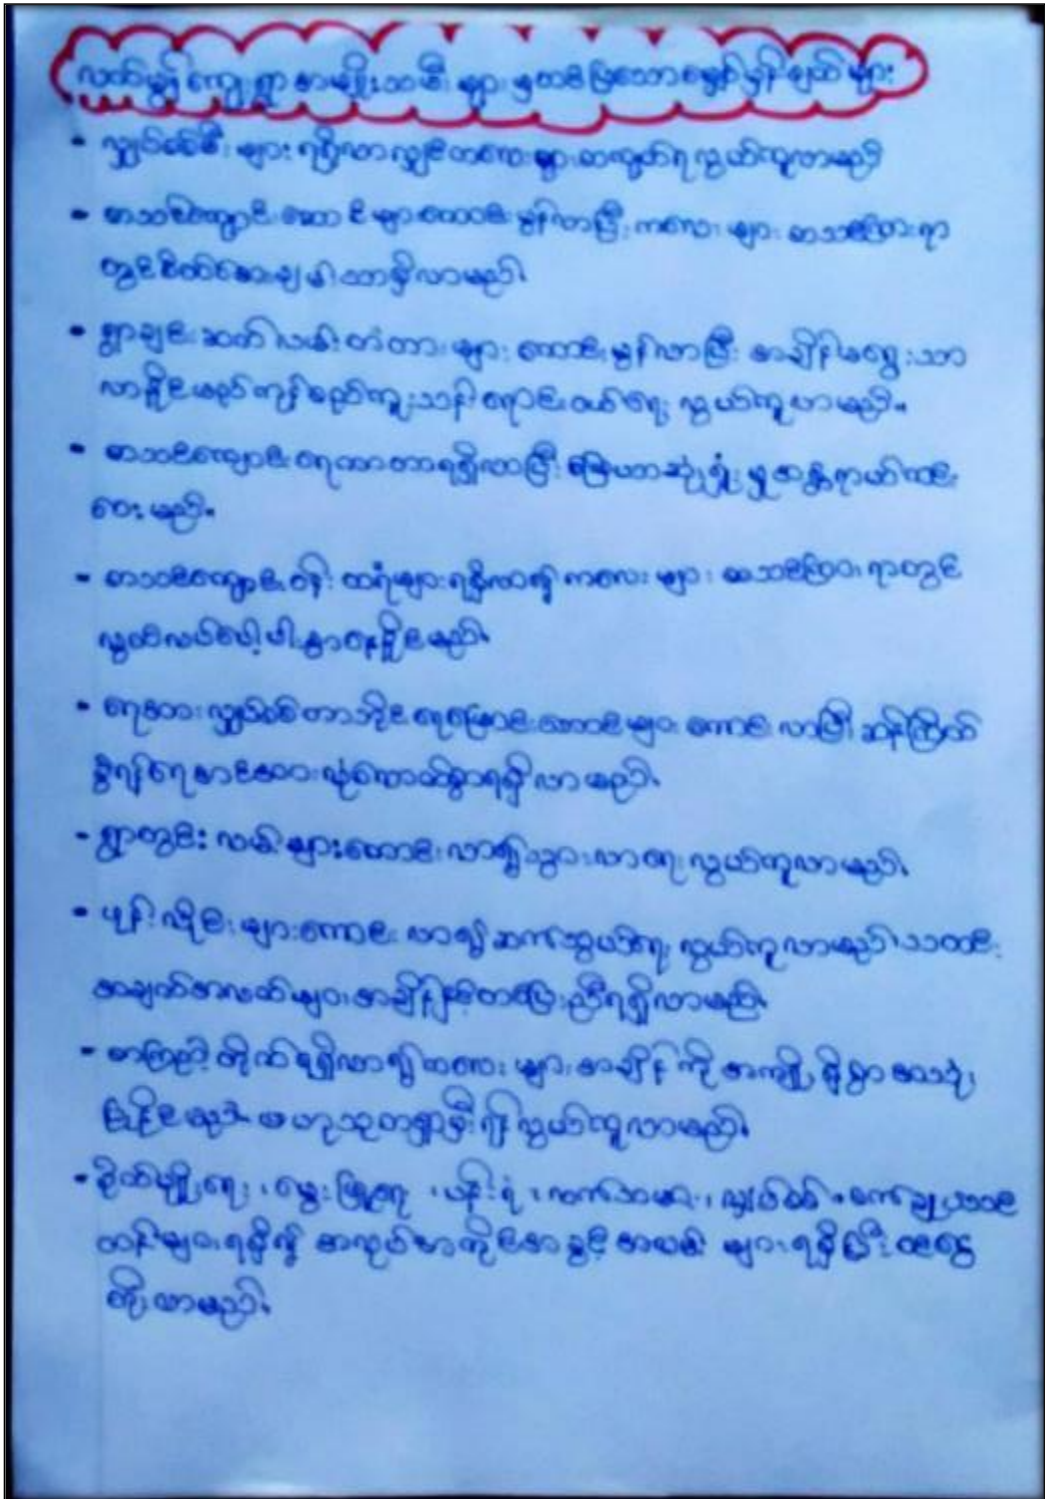 လက်မွန်ကျေးရွာ အမျိုးသမီး များ မှတင်ပြသောမျှော်မှန်းချက်များ
• လျှပ်စစ်မီး များ ရရှိလာလျှင်ကလေးများ စာကျက်ရ လွယ်ကူလာမည်
• စာသင်ကျောင်း ဆောင်များကောင်းမွန်လာပြီး ကလေး များ စာသင်ကြားရာ
တွင်စိတ်အေးချမ်းသာရှိလာမည်။
• ရွာချင်း ဆက်လမ်း တံတား များ ကောင်းမွန်လာပြီး အချိန်မရွေး သွား
လာနိုင်မည် ကုန်စည်ကူးသန်း ရောင်းဝယ်ရေး လွယ်ကူလာမည်။
• စာသင်ကျောင်း ရေကာတာရရှိလာပြီး မြေယာဆုံးရှုံး မှုအန္တရာယ်ကင်း
ဝေး မည်။
• စာသင်ကျောင်းဝန်း ထရံများရရှိလာ၍ ကလေး များ စာသင်ကြားရာတွင်
လွတ်လပ်ပေါ့ပါးစွာနေနိုင်မည်။
• ရေအား လျှပ်စစ် တာဘိုင် ရေမြောင်းဘောင်များ ကောင်း လာပြီး ဆန်ကြိတ်
ခွဲရန်ရေအင်အားလုံလောက်စွာရရှိ လာမည်။
• ရွာတွင်း လမ်းများကောင်းလာ၍သွားလာရေး လွယ်ကူလာမည်။
• ဖုန်းလိုင်းများကောင်း လာ၍ ဆက်သွယ်ရေး လွယ်ကူလာမည် သတင်း
အချက်အလက်များအချိန်နှင့်တစ်ပြေးညီရရှိလာမည်။
• စာကြည့်တိုက်ရရှိလာ၍ကလေး များ အချိန်ကို အကျိုးရှိစွာ အသုံး
ပြုနိုင်မည် ဗဟုသုတရှာမှီးရန်လွယ်ကူလာမည်။
• စိုက်ပျိုးရေး ၊ မွေးမြူရေး ၊ ပန်းရံ ၊ လက်သမား ၊ လျှပ်စစ် ၊ စက်ချုပ်သင်
တန်းများရရှိ၍ အလုပ်အကိုင်အခွင့်အလမ်း များရရှိပြီးဝင်ငွေ
တိုးလာမည်။